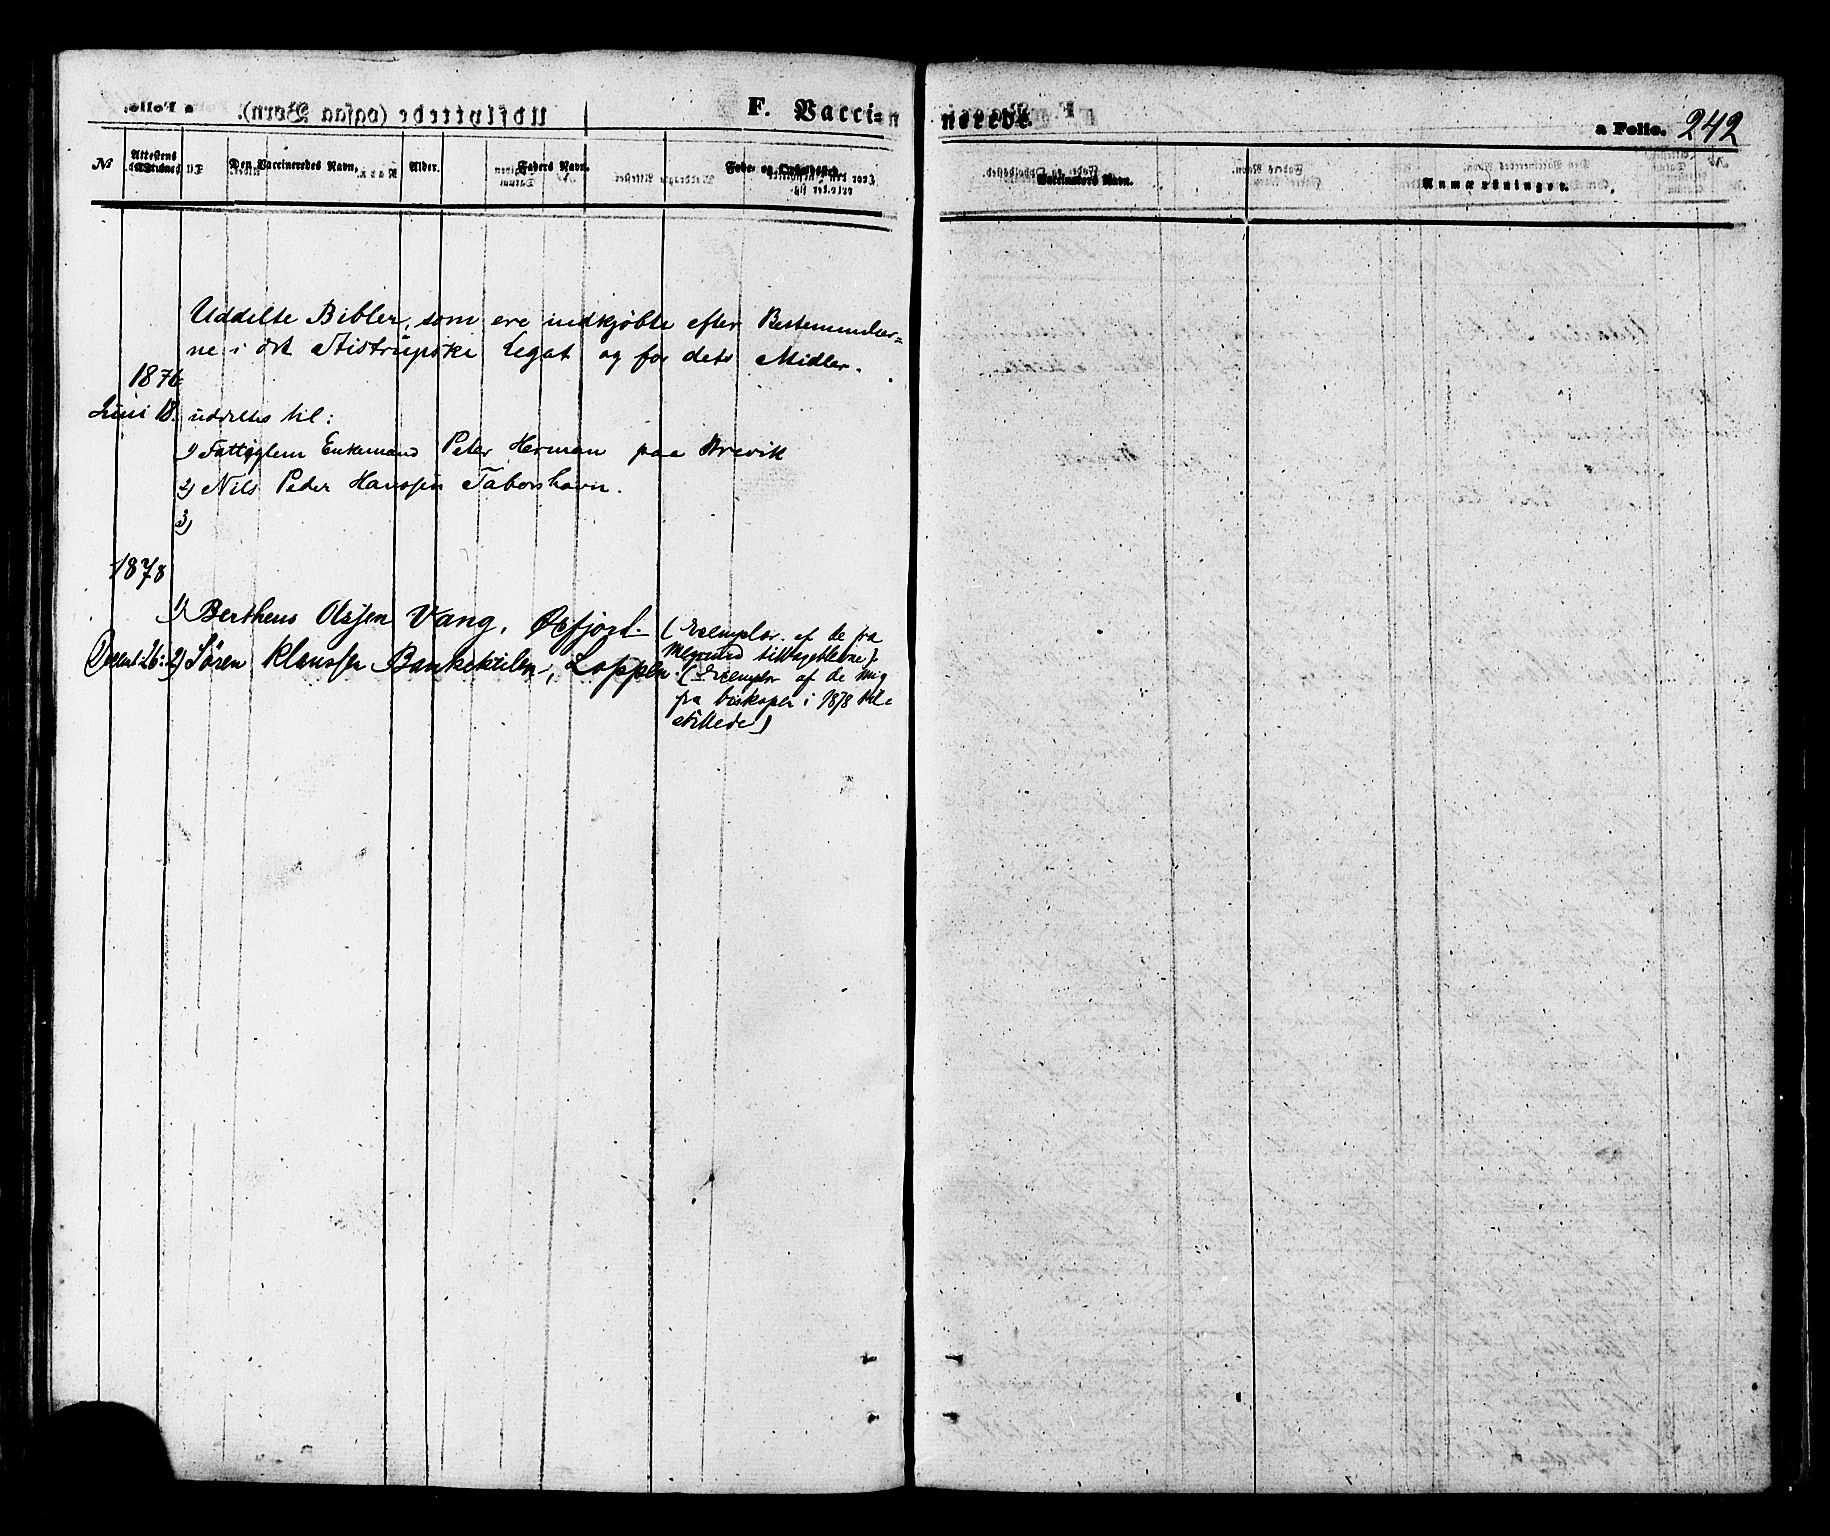 F. Vacci=
nerede.
a Folio. 242
№ Attestens Datum. Den Vaccineredes Navn. Alder. Faders Navn. Føde- og Opholdssted.
Vaccinators Navn. Anmærkninger.
Uddelte Bibler, som ere indkjøbte efter Bestemmelser=
ne i det Stistrupske Legat og for dets Midler.
1876
Juni 18. uddeltes til:
1) Fattiglem Enkemand Peter Herman paa Brevik
2) Nils Peder Hanssen Taborshavn.
3)
1878
1) Berthens Olsen Vang, Øxfjord. (Exemplar af de fra
tiltageblevne).
Decemb. 26: 2) Sören Klaussen Bankekeilen, Loppen. (Exemplar af de mig
fra biskopen i 1878 til=
stillede)